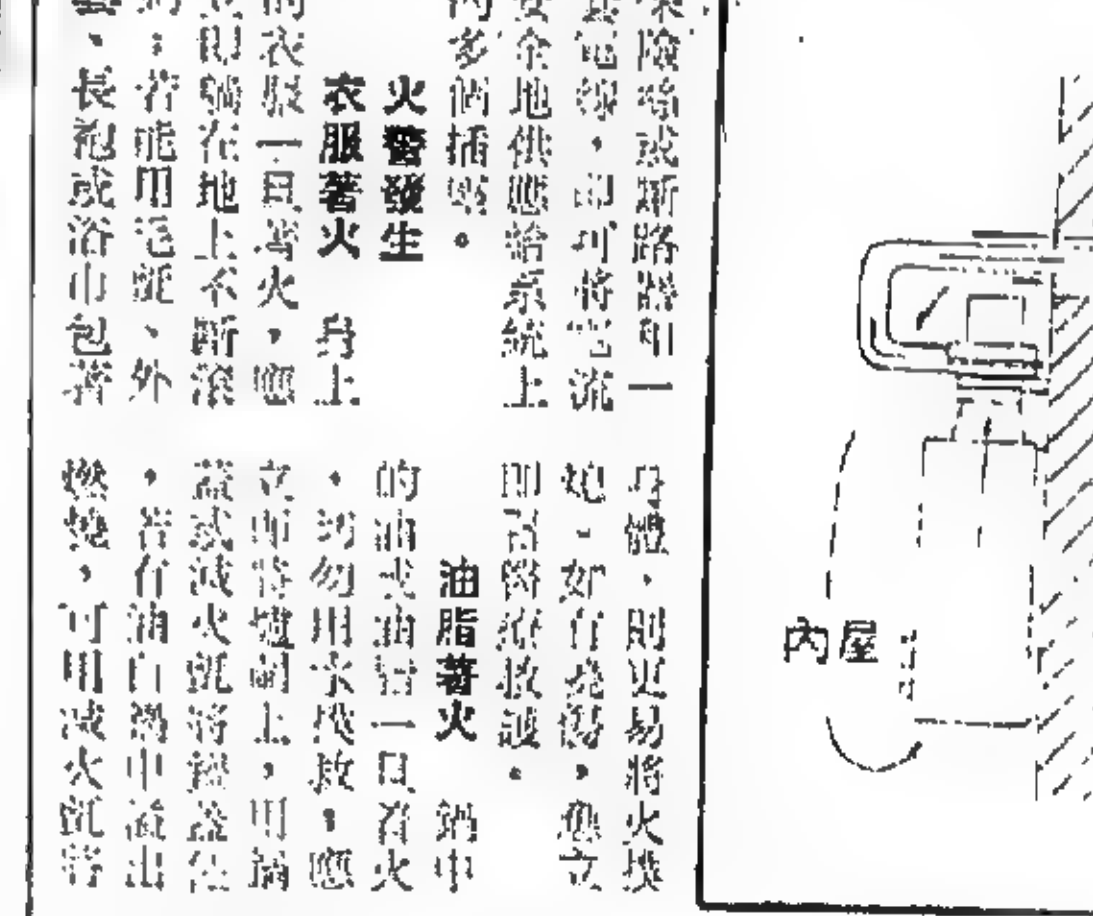 保險絲或斷路器和一
電線，即可將電流
安全地供應給系統上
內多個插座。
火警發生
衣服著火 身上
的衣服一旦著火，應
立即躺在地上不斷滾
若能用毛毯、外
長袍或浴巾包著
身體，則更易將火撲
熄。如有燒傷，應立
即召醫療救護。
油脂著火 鍋中
的油或油脂一旦着火
，切勿用水撲救，應
立即將爐關上，用鍋
蓋或滅火氈將鍋蓋住
，若有油自鍋中溢出
燃燒，可用滅火氈將
內屋